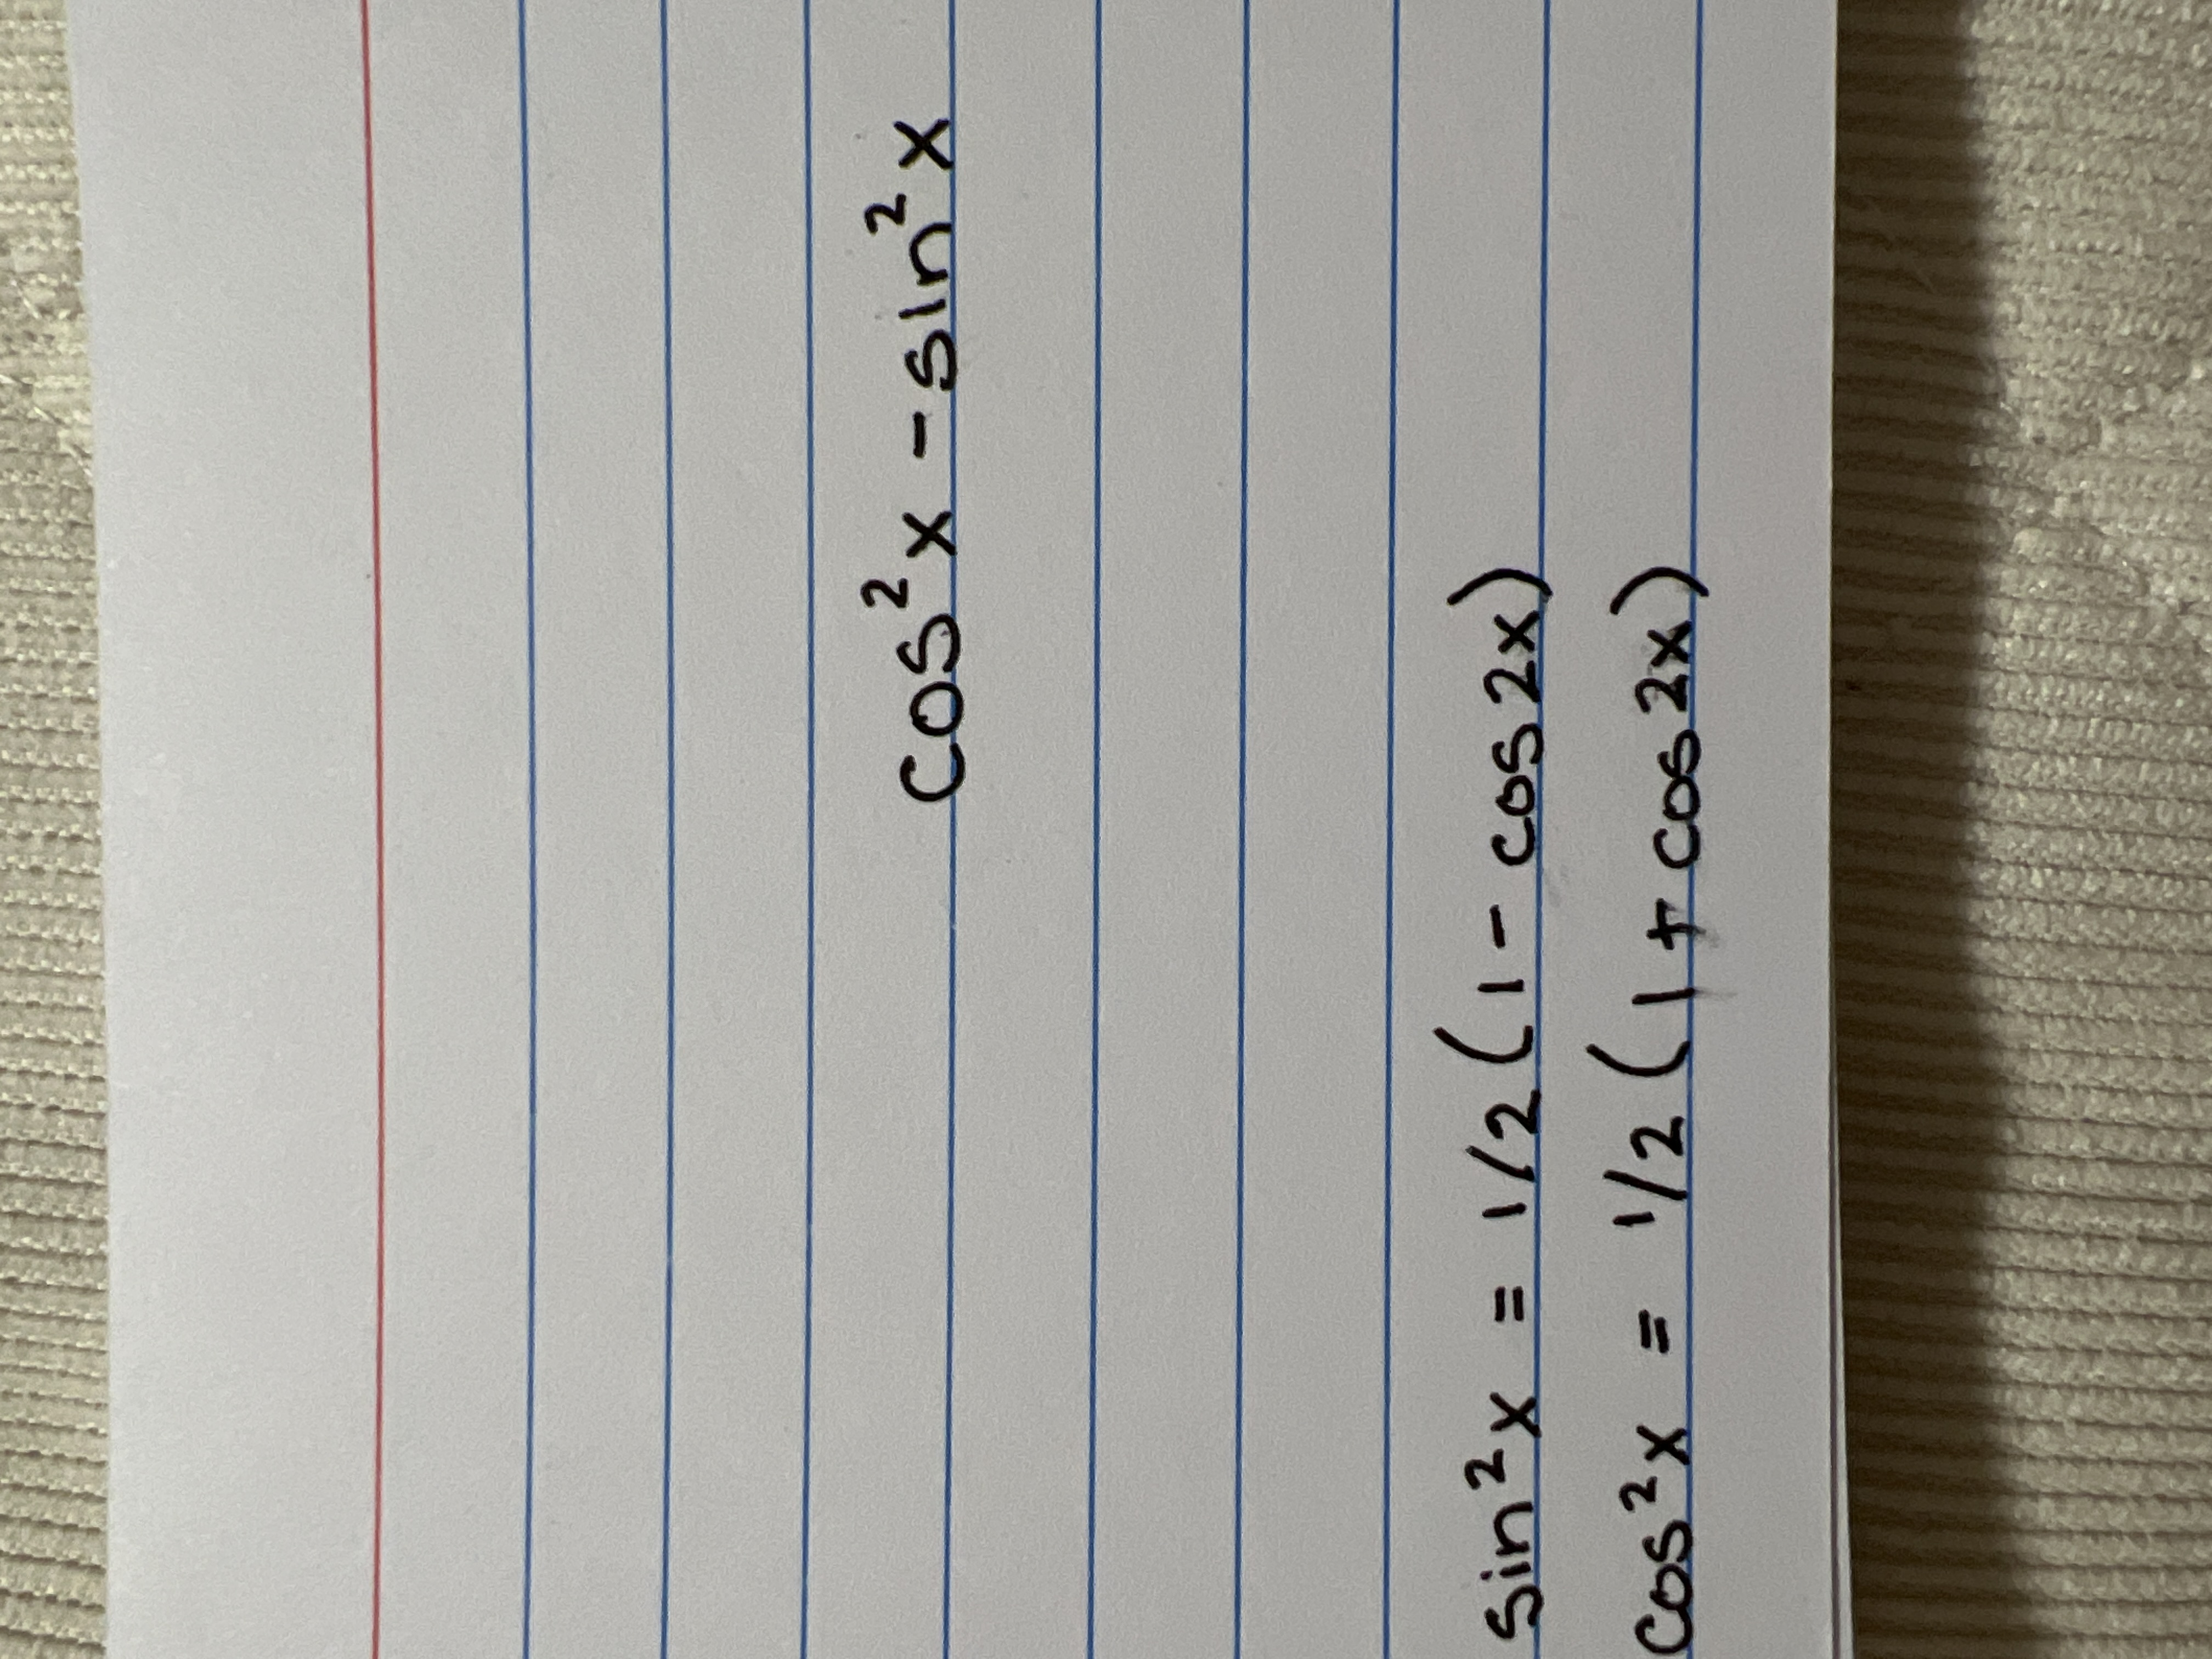 cos²x - sin²x
sin²x = 1/2 (1 - cos2x)
cos²x = 1/2 (1 + cos2x)